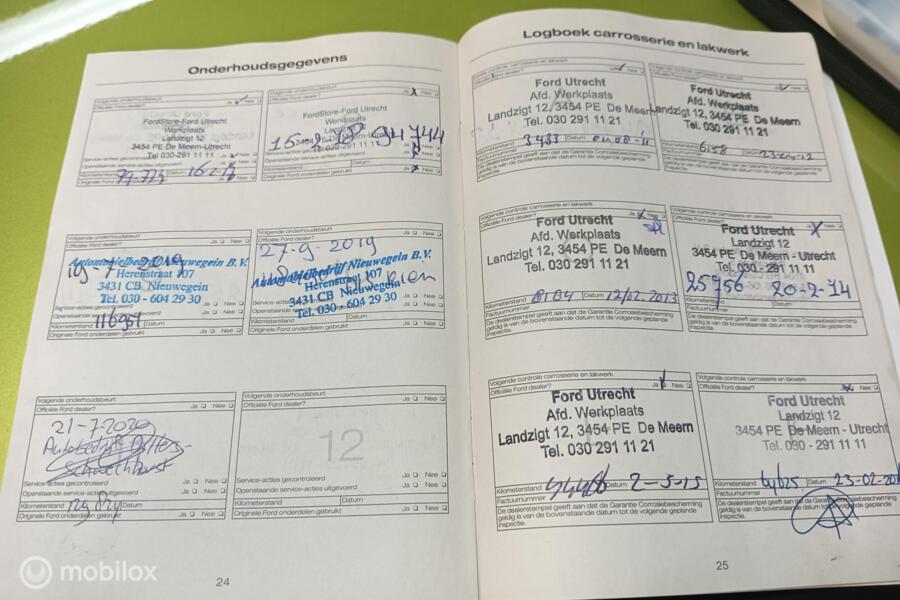 Onderhoudsgegevens
Volgende onderhoudsbeurt
Ja Nee
FordStore-Ford Utrecht
Werkplaats
Landzigt 12
3454 PE De Meern-Utrecht
Tel 030-291 11 11
Service-acties
Openstaande service-acties
Kilometerstand 79-774 Datum
Originele Ford onderdelen
Volgende onderhoudsbeurt
Ja Nee
FordStore-Ford Utrecht
Werkplaats
94744
Datum
Originele Ford onderdelen gebruikt
Volgende onderhoudsbeurt
Officiële Ford dealer? Ja Nee
Automobielbedrijf Nieuwegein B.V.
Herenstraat 107
3431 CB Nieuwegein
Tel. 030 - 604 29 30
Service-acties gecontroleerd Ja Nee
Openstaande service-acties uitgevoerd Ja Nee
Kilometerstand Datum
Originele Ford onderdelen gebruikt Ja Nee
Volgende onderhoudsbeurt
Officiële Ford dealer? Ja Nee
27-9-2019
Automobielbedrijf Nieuwegein B.V.
Herenstraat 107
3431 CB Nieuwegein
Tel. 030 - 604 29 30
Kilometerstand Datum
Originele Ford onderdelen gebruikt Ja Nee
Volgende onderhoudsbeurt
Officiële Ford dealer? Ja Nee
21-7-2020
Service-acties gecontroleerd Ja Nee
Openstaande service-acties uitgevoerd Ja Nee
Kilometerstand Datum
Originele Ford onderdelen gebruikt Ja Nee
Volgende onderhoudsbeurt
Officiële Ford dealer? Ja Nee
12
Service-acties gecontroleerd Ja Nee
Openstaande service-acties uitgevoerd Ja Nee
Kilometerstand Datum
Originele Ford onderdelen gebruikt Ja Nee
24
Logboek carrosserie en lakwerk
Volgende controle carrosserie en lakwerk
Officiële Ford dealer? Ja Nee
Ford Utrecht
Afd. Werkplaats
Landzigt 12, 3454 PE De Meern
Tel. 030 291 11 21
Kilometerstand 3433 Datum
Factuurnummer
De dealerstempel geeft aan dat de Garantie Corrosiebescherming
geldig is van de bovenstaande datum tot de volgende geplande
inspectie.
Volgende controle carrosserie en lakwerk
Ford Utrecht
Afd. Werkplaats
Landzigt 12, 3454 PE De Meern
Tel. 030 291 11 21
Kilometerstand 6158 Datum
Factuurnummer
De dealerstempel geeft aan dat de Garantie Corrosiebescherming
geldig is van de bovenstaande datum tot de volgende geplande
inspectie.
Volgende controle carrosserie en lakwerk
Officiële Ford dealer? Ja Nee
Ford Utrecht
Afd. Werkplaats
Landzigt 12, 3454 PE De Meern
Tel. 030 291 11 21
Kilometerstand Datum 12/02.2013
Factuurnummer
De dealerstempel geeft aan dat de Garantie Corrosiebescherming
geldig is van de bovenstaande datum tot de volgende geplande
inspectie.
Volgende controle carrosserie en lakwerk
Officiële Ford dealer? Ja Nee
Ford Utrecht
Landzigt 12
3454 PE De Meern - Utrecht
Tel. 030 - 291 11 11
25756 20-2-14
Kilometerstand
Factuurnummer
De dealerstempel geeft aan dat de Garantie Corrosiebescherming
geldig is van de bovenstaande datum tot de volgende geplande
inspectie.
Volgende controle carrosserie en lakwerk
Officiële Ford dealer? Ja Nee
Ford Utrecht
Afd. Werkplaats
Landzigt 12, 3454 PE De Meern
Tel. 030 291 11 21
Kilometerstand Datum 2-3-15
Factuurnummer
De dealerstempel geeft aan dat de Garantie Corrosiebescherming
geldig is van de bovenstaande datum tot de volgende geplande
inspectie.
Volgende controle carrosserie en lakwerk
Officiële Ford dealer? Ja Nee
Ford Utrecht
Landzigt 12
3454 PE De Meern - Utrecht
Tel. 030 - 291 11 11
Kilometerstand Datum
Factuurnummer
De dealerstempel geeft aan dat de Garantie Corrosiebescherming
geldig is van de bovenstaande datum tot de volgende geplande
inspectie.
25
mobilox